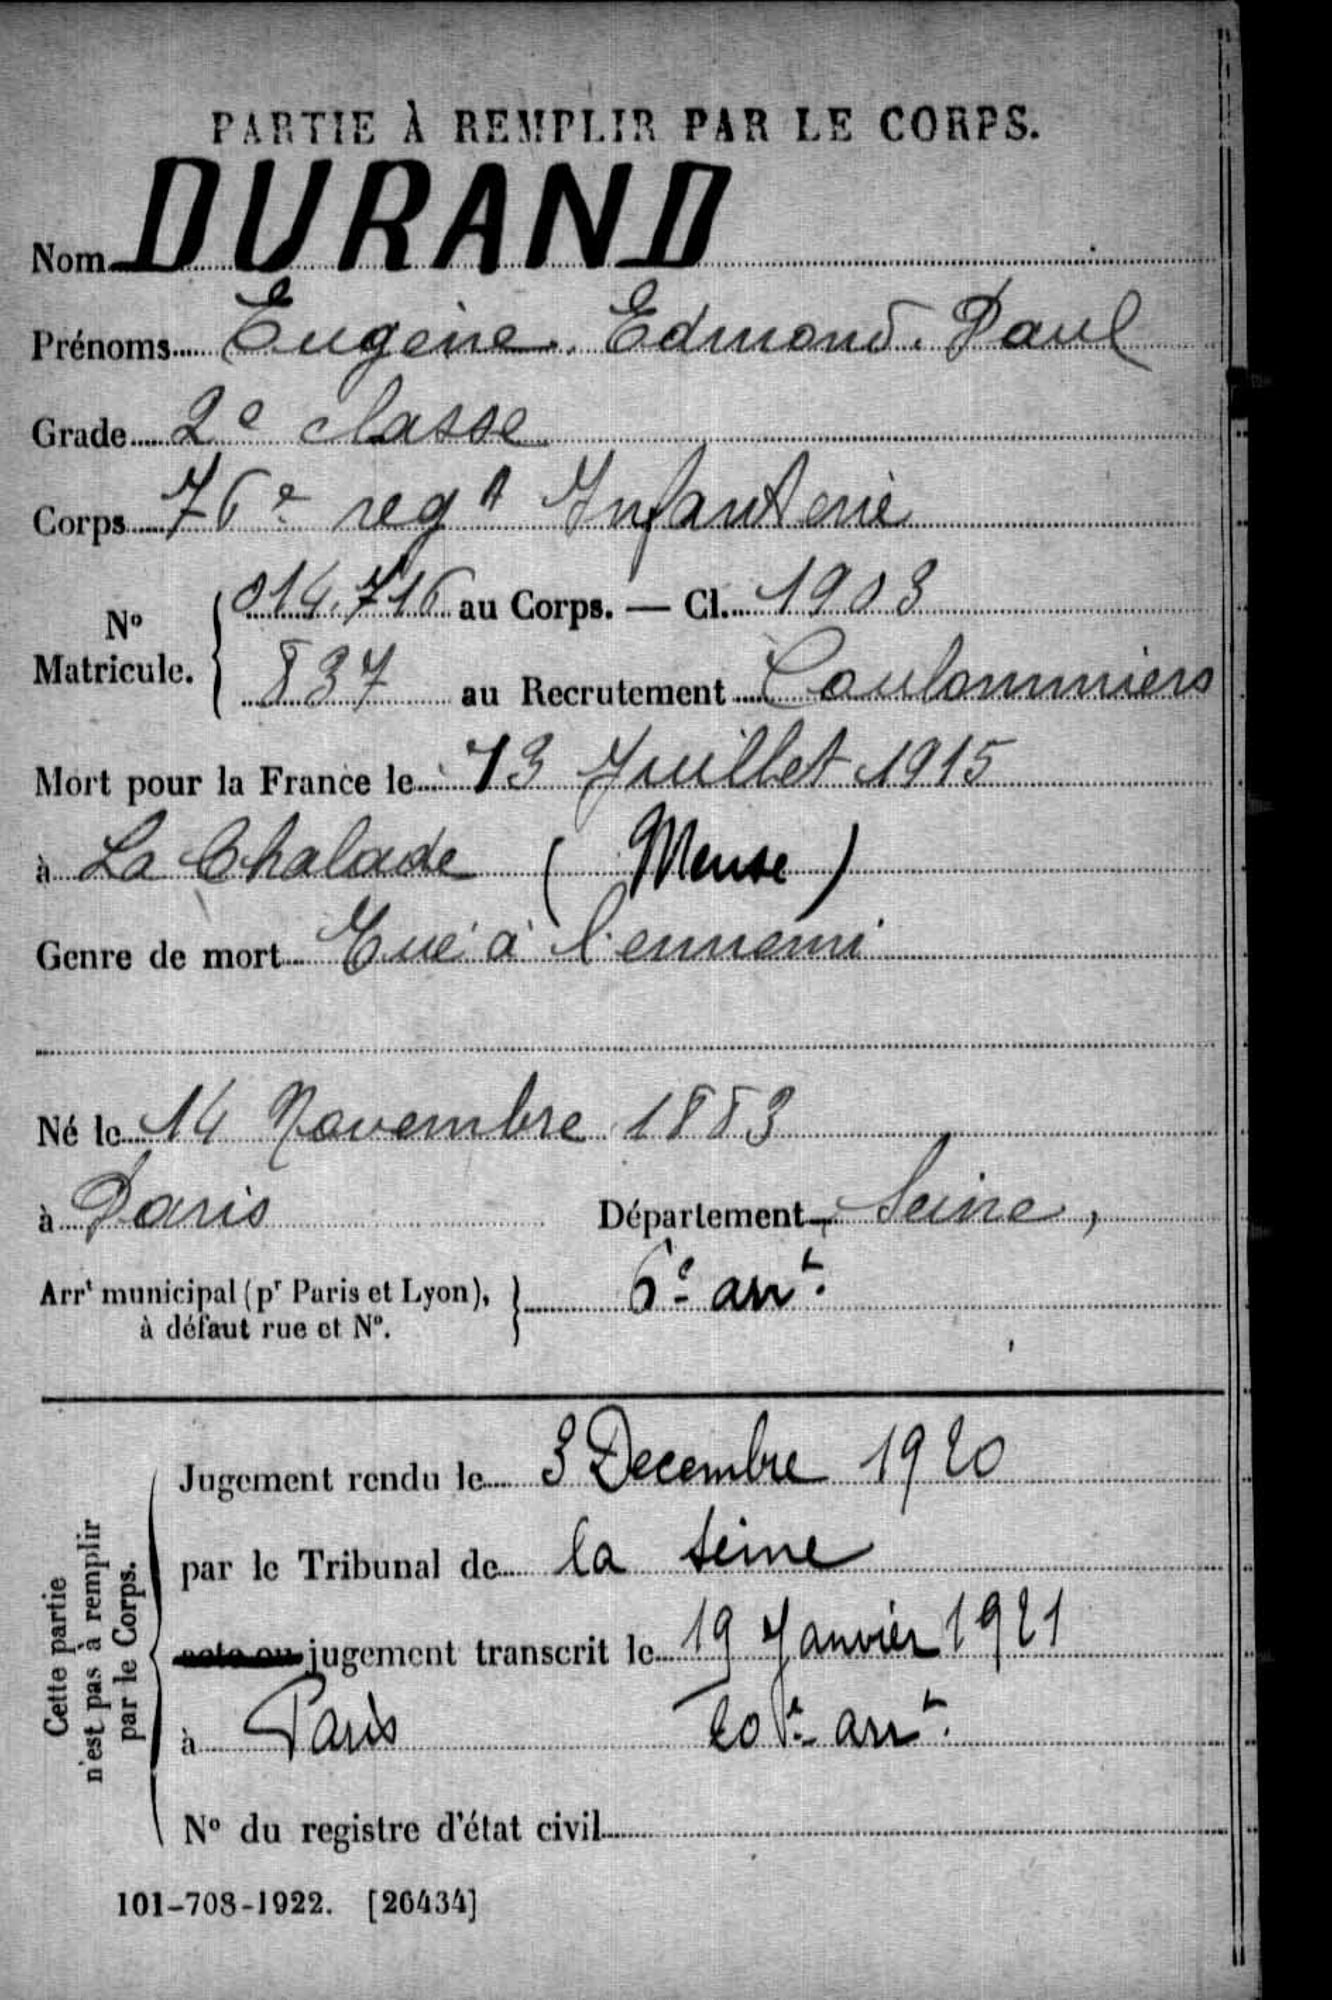 PARTIE À REMPLIR PAR LE CORPS.
Nom DURAND
Prénoms Eugène. Edmond. Paul
Grade 2e classe
Corps 76e regt Infanterie
No Matricule. { 014.716 au Corps. — Cl. 1903
837 au Recrutement Coulommiers
Mort pour la France le 13 Juillet 1915
à La Chalade (Meuse)
Genre de mort Tué à l'ennemi
Né le 14 Novembre 1883
à Paris Département Seine,
Arrt municipal (pr Paris et Lyon), } 6e arrt.
à défaut rue et No.
Cette partie
n'est pas à remplir
par le Corps.
Jugement rendu le 3 Decembre 1920
par le Tribunal de la Seine
acte ou jugement transcrit le 19 Janvier 1921
à Paris 20e arrt.
No du registre d'état civil
101-708-1922. [26434]